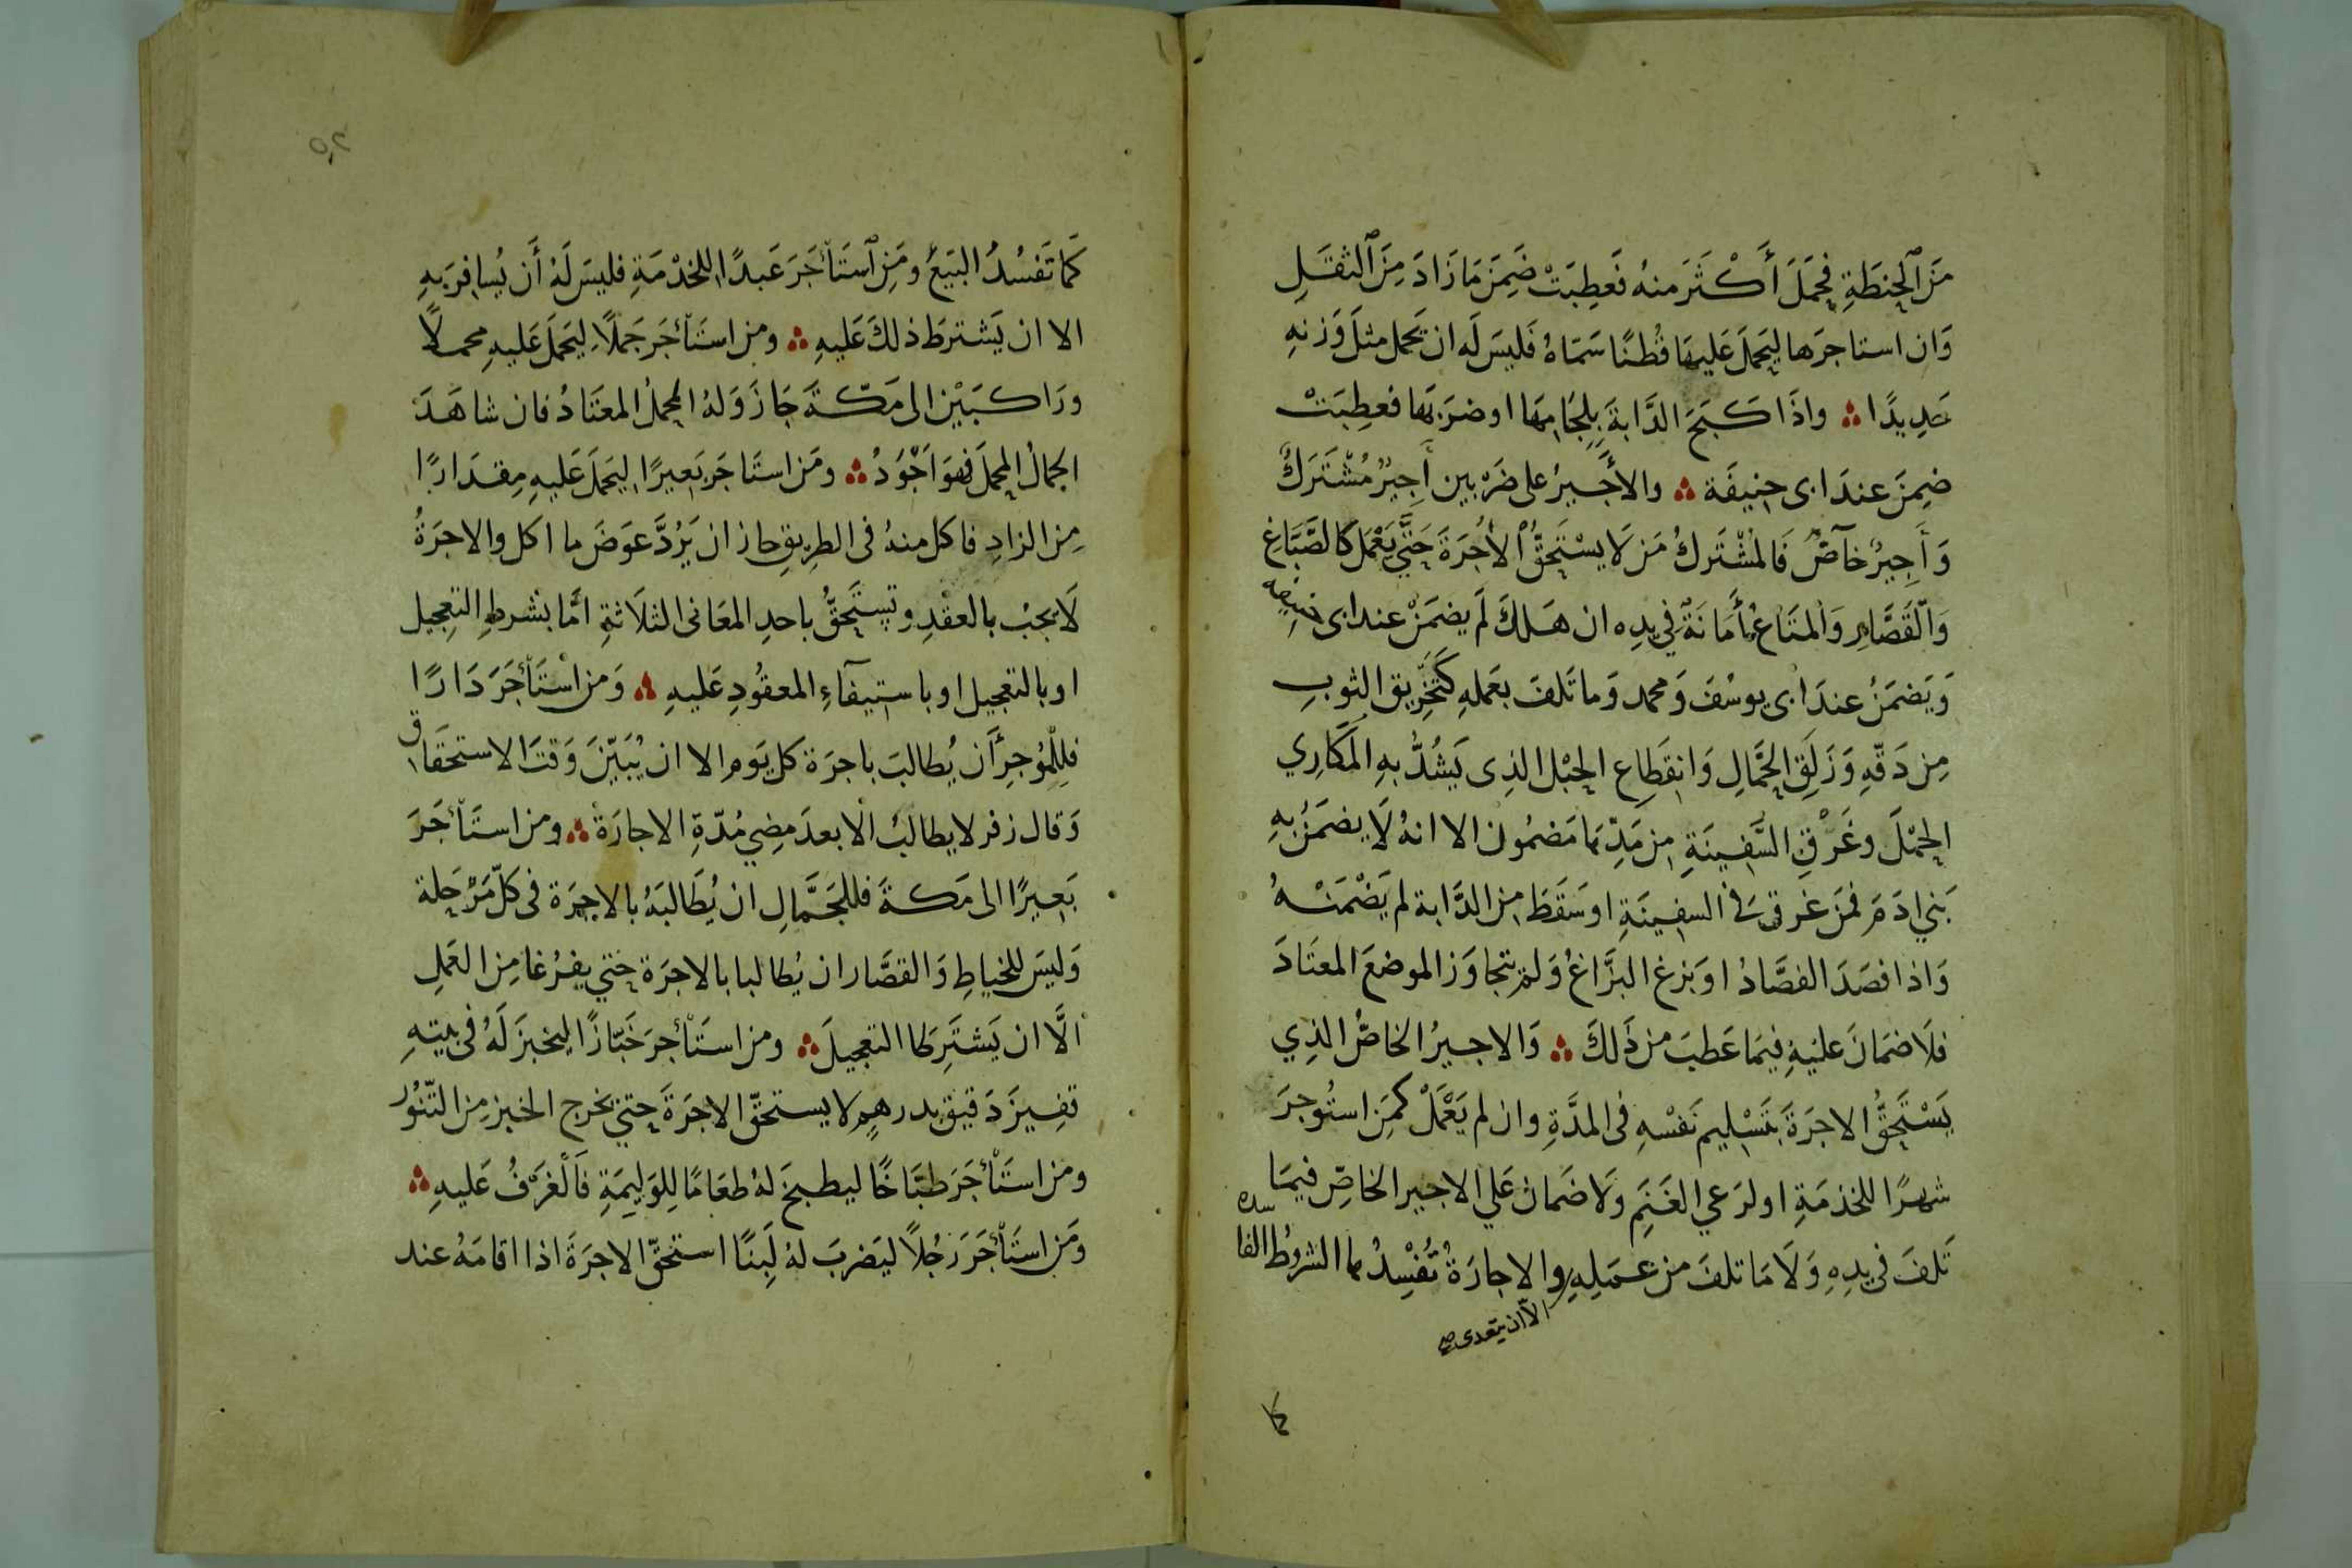 مَنَ ٱلحِنطَةِ فحَمَلَ أَكْثَرَ منهُ فَعَطِبَتْ ضَمِنَ مَا زَادَ مِنَ ٱلثقَلِ
وَان استاجرَها ليَحمَلَ عَليهَا قُطنًا سَمّاهُ فَليسَ لَه ان يَحمل مثلَ وَزنهِ
حَدِيدًا ؞ واذَا كَبَحَ الدَّابةَ بِلِجَامِهَا اوضرَبَها فعطِبَتْ
ضمِنَ عندَ ابى حنِيفَة ؞ والأَجَيرُ على ضَرْبين أَجِيرٌ مُشْتَرَكٌ
وَ أَجِيرٌ خآصٌ فَالمشْتَركُ مَن لَا يسْتَحِقُّ ٱلأُجُرَةَ حَتَّي يَعْمَل كَالصَّبَّاغِ
وَالْقَصَّارِ وَالمتَاعُ أَمَانَةٌ فِي يدِه ان هَلكَ لَم يضمَنْ عندابى حنيفه
وَيَضمَنُ عندَ ابى يوسُفَ وَمحمد وَما تَلفَ بعَملهِ كَتَخْرِيق الثوبِ
مِن دَقّهِ وَزَلَقِ الحَمَّالِ وَانقَطِاع الحَبْل الذِى يَشُدُّ بهِ المكَارِي
الحِمْلَ وغَرْقِ السَّفِينَةِ مِن مَدِّهَا مَضمُون الا انهُ لَا يضمَنُ بهِ
بَني ادَمَ فمَن غرق فى السفِينَةِ اوسَقَطَ مِن الدَّابة لم يَضْمَنْهُ
وَاذا فصَدَ الفصَّادُ اوبَزغ البزَّاغُ وَلم يتجاوَز الموضعَ المعتَادَ
فلَا ضمَانَ عليهِ فيمَا عَطبَ من ذَلكَ ؞ وَالاجيرُ الخاصُّ الذِي
يَسْتَحِقُّ الاجرَةَ بتَسْلِيم نَفْسْهِ فى المدَّةِ وان لم يَعْمَلْ كمَن استُوجرَ
شهرًا للخدمَةِ اولرَعي الغَنَمِ وَلَا ضَمانَ عَلي الاجير الخاصِّ فيمَا
تَلفَ فى يدِهِ وَلَا مَا تلفَ من عمَلِهِ والاجارَةُ تُفْسِدُها الشروُط الفاسده
الاّ ان يتعدى صح
كما
٥٢
كَمَا تَفسُدُ البَيَعُ ومَنِ ٱستَأْجَرَ عَبدًا للخدْمَةِ فليسَ لَهُ أَن يُسافِرَ بهِ
الا ان يَشترطَ ذلكَ عَليهِ ؞ ومن استَأْجَرَ جَملًا ليَحمَلَ عَليهِ محملًا
ورَاكبَيْن الى مَكّةَ جَازَ وَلهُ المحملُ المعتَادُ فان شاهَدَ
الجمالُ المحملَ فهوَ اَجْوَدُ ؞ ومَن استَاجَر بَعِيرًا ليَحمَلَ عَليهِ مِقدَارًا
مِن الزادِ فاكل منهُ فى الطرِيقِ جاز ان يَرُدَّ عوَضَ ما اكل والاجرَةُ
لَا يجبُ بالعقْدِ وتستَحِقُّ باحدِ المعَانى الثلَاثةِ امَّا بشرطِ التعجيل
او بالتعجيل او باستِيفآءِ المعقُودِ عَليهِ ؞ وَمن اسْتَأْجَرَ دَارًا
فلِلْمُؤجِرِ أَن يُطالبَ باجرَة كل يَوم الا ان يُبَيّنَ وَقتَ الاستحقَاق
وَقال زفر لا يطالبُ الا بعدَ مضِي مُدّةِ الاجارَة ؞ ومن استَأْجَرَ
بَعِيرًا الى مَكةَ فللجَمَّالِ ان يُطَالبَهُ بالاجرَة فى كلّ مَرْحَلة
وَليسَ للخياطِ وَالقصَّار ان يُطالبا بالاجرَة حتي يفرُغا مِن العَملِ
الَّا ان يَشتَرِطا التعجيلَ ؞ ومن استَأْجرَ خَبّازًا ليخبزَ لَهُ فى بيتهِ
قفِيزَ دَقيق بدرهمٍ لا يستحقّ الاجرَةَ حتي يخرج الخبز مِن التّنّوُر
ومن استَأْجَرَ طبَّاخًا ليطبخَ لهُ طعَامًا لِلوَليمَةِ فَالْغَرْفُ عَليهِ ؞
ومَن استَأْجَرَ رَجُلاً ليَضربَ لهُ لَبِنًا استحَقّ الاجرَةَ اذا اقامَهُ عند